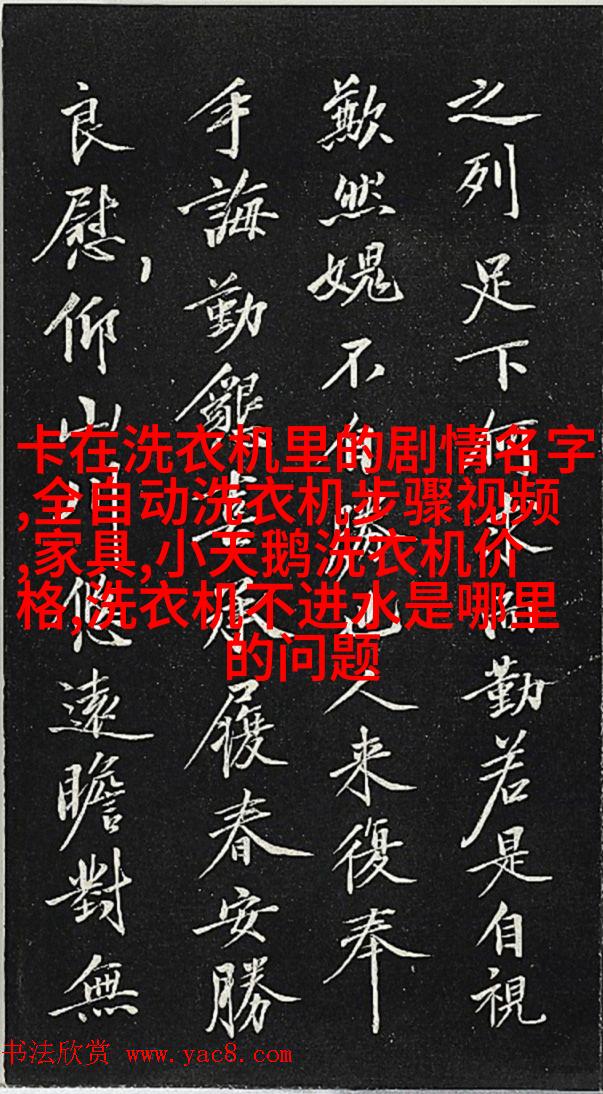 之列足下何来勤若是自視
歉然媿不自勝也人来復奉
手誨勤懇喜承履春安勝
良慰,仰山川悠遠瞻對無
卡在洗衣机里的剧情名字
,全自动洗衣机步骤视频
,家具,小天鹅洗衣机价
格,洗衣机不进水是哪里
的问题
书法欣赏 www.yac8.com